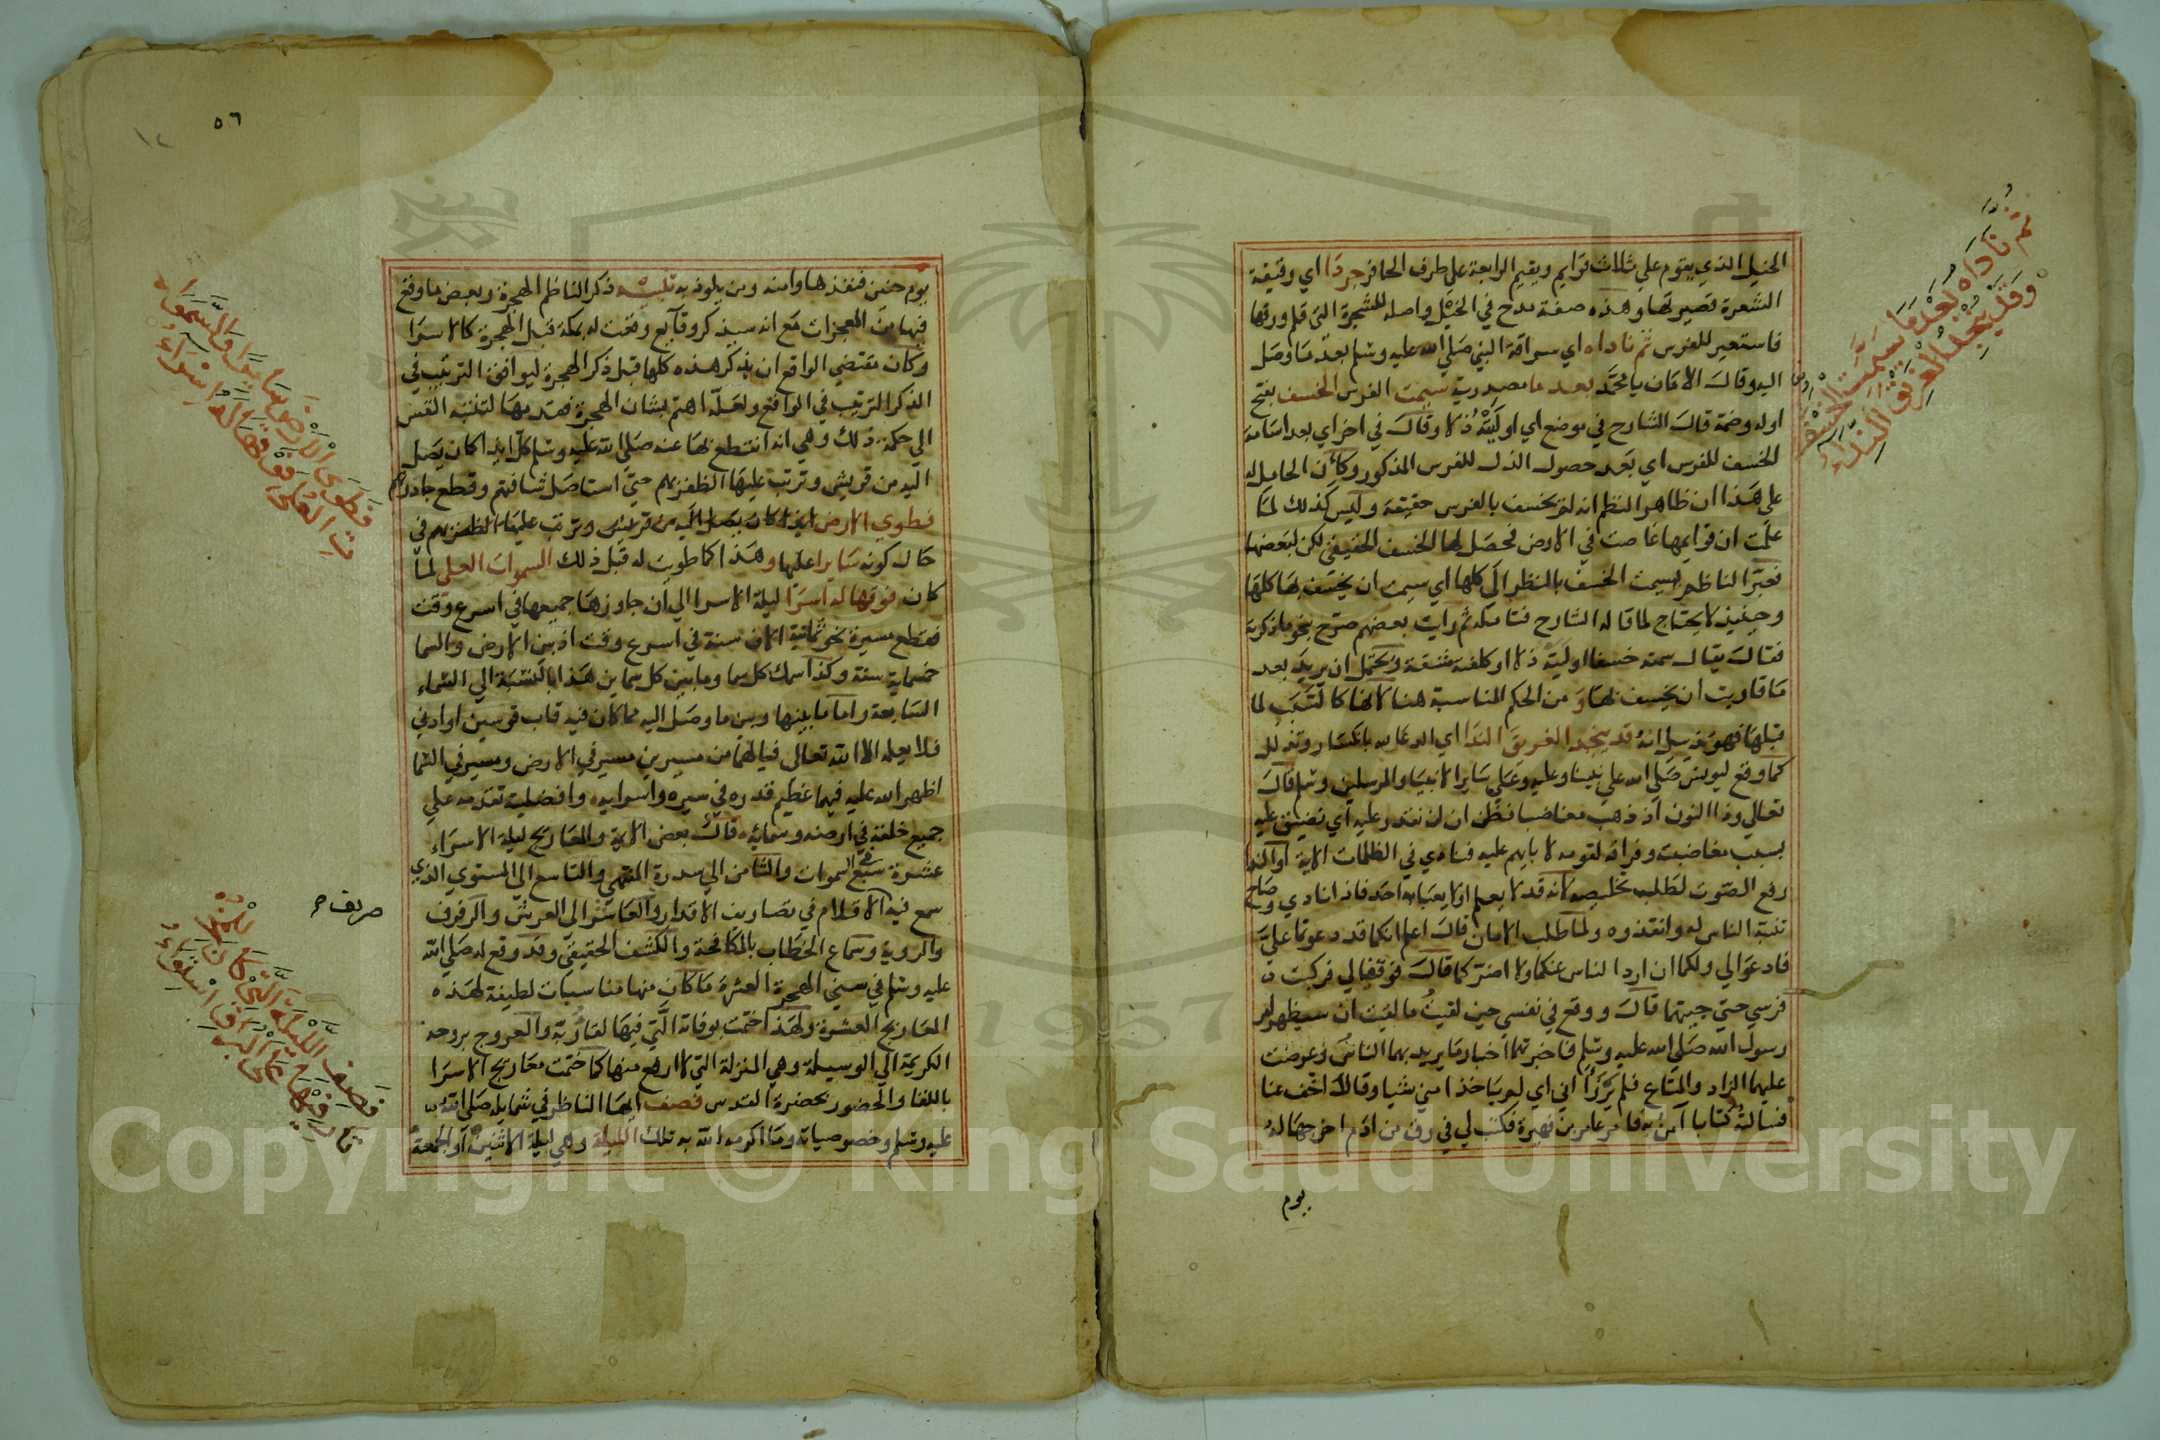 الخيل الذي يقوم علي ثلاث قوايم ويقيم الرابعة علي طرف الحافر جردا اي رقيقة
الشعرة قصيرتها وهذه صفة مدح في الخيل واصله للشجرة التي قل ورقها
فاستعير للفرس ثم ناداه اي سراقة النبي صلي الله عليه وسلم بعد ما وصل
اليه وقال الامان يا محمد بعد ما مصدرية سيمت الفرس الخسف بفتح
اوله وضمه قال الشارح في موضع اي اوليته ذلا وقال في اخر اي بعد اسامة
الخسف للفرس اي بعد حصول الذل للفرس المذكور وكان الحامل له
علي هذا ان ظاهر النظم انه لم يخسف بالفرس حقيقة وليس كذلك لما
علمت ان قوايمها غاصت في الارض فحصل لها الخسف الحقيقي لكن لبعضها
فعبر الناظم بسيمت الخسف بالنظر الي كلها اي سيمت ان يخسف بها كلها
وحينيذ لا يحتاج لما قاله الشارح فتامله ثم رايت بعضهم صرح بنحو ما ذكرته
فقال يقال سمته خسفا اوليته ذلا او كلفته مشقة ويحتمل ان يريد بعد
ما قاربت ان يخسف بها و من الحكم المناسبة هنا لانها كالسبب لما
قبلها فهو تذييل انه قد ينجد الغريق الندا اي الدعا به بانكسار وتذلل
كما وقع ليونس صلي الله علي نبينا وعليه وعلي ساير الانبيا والمرسلين وسلم قال
تعالي وذا النون اذ ذهب مغاضبا فظن ان لن نقدر عليه اي نضيق عليه
بسبب مغاضبته وفراقه لقومه لا بابهم عليه فنادي في الظلمات الاية او الندا
رفع الصوت لطلب تخليصه لانه قد لا يعلم او لا يعبا به احد فاذا نادي وصاح
تنبه الناس له وانقذوه ولما طلب الامان قال اعلم انكما قد دعوتما علي
فادعوا لي ولكما ان ارد الناس عنكما ولا اضر كما قال فوقفا لي فركبت
فرسي حتي جيتهما قال ووقع في نفسي حين لقيت ما لقيت ان سيظهر امر
رسول الله صلي الله عليه وسلم فاخبرتهما اخبار ما يريد بهما الناس وعرضت
عليهما الزاد والمتاع فلم يرزا اني اي لم ياخذا مني شيا وقالا اخف عنا
فسالته كتابا آمن به فامر عامر بن فهيرة فكتب لي في رق من ادم اخرجها له
يوم
ثم ناداه بعد ما سيمت الخسف
وقد ينجد الغريق النداء
٥٦
١٢
يوم حنين فنفذها وامنه ومن يلوذ به تنبيه ذكر الناظم الهجرة وبعض ما وقع
فيها من المعجزات مع انه سيذكر وقايع وقعت له بمكة قبل الهجرة كالاسرا
وكان مقتضي الواقع ان يذكر هذه كلها قبل ذكر الهجرة ليوافق الترتيب في
الذكر الترتيب في الواقع ولعله اهتم بشان الهجرة فقدمها لتنبه النفس
الي حكمة ذلك وهي انه انقطع بها عنه صلي الله عليه وسلم كل ايذا كان يصل
اليه من قريش وترتب عليها الظفر بهم حتي استاصل شافتهم وقطع جادرتهم
فطوي الارض ايذا كان يصل اليه من قريش وترتب عليها الظفر بهم في
حاله كونه سايرا عليها وهذا كما طويت له قبل ذلك السموات العلي لما
كان فوقها له اسرا ليلة الاسرا الي ان جاوزها جميعها في اسرع وقت
فقطع مسيرة نحو ثمانية الاف سنة في اسرع وقت اذ بين الارض والسما
خمسماية سنة وكذا سمك كل سما وما بين كل سماين هذا بالنسبة الي السماء
السابعة واما ما بينها وبين ما وصل اليه مما كان فيه قاب قوسين او ادني
فلا يعلمه الا الله تعالي فيالهما من مسيرين مسير في الارض ومسير في السما
اظهر الله عليه فيهما عظيم قدره في سيره واسرايه وافضليته تقدمه علي
جميع خلقه في ارضه وسمائه قال بعض الايمة والمعاريج ليلة الاسراء
عشرة سبع السموات والثامن الي سدرة المنتهي والتاسع الي المستوي الذي
سمع فيه الاقلام في تصاريف الاقدار والعاشر الي العرش والرفرف
والروية وسماع الخطاب بالمكافحة والكشف الحقيقي وقد وقع له صلي الله
عليه وسلم في سني الهجرة العشرة ما كان منها مناسبات لطيفة لهذه
المعاريج العشرة ولهذا ختمت بوفاته التي فيها لقا ربه والعروج بروحه
الكريمة الي الوسيلة وهي المنزلة التي لا ارفع منها كما ختمت معاريج الاسرا
باللقا والحضور بحضرة القدس فصف ايها الناظر في شمايله صلي الله
عليه وسلم وخصوصياته وما اكرمه الله به تلك الليلة وهي ليلة الاثنين او الجمعة
فطوى الأرض سايرا والسموا
ت العلى فوقها له إسراء
صريف
فصف الليلة التي كان للمختا
ر فيها على البراق استواء